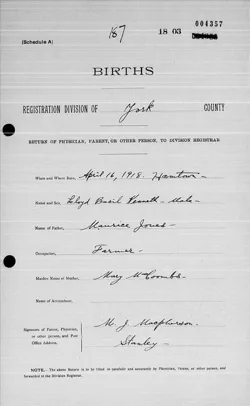 187
18 03
004357
(Schedule A)
BIRTHS
REGISTRATION DIVISION OF York COUNTY
RETURN OF PHYSICIAN, PARENT, OR OTHER PERSON, TO DIVISION REGISTRAR
When and Where Born, April 16, 1918. Hamtown
Name and Sex, Lloyd Basil Kenneth - Male
Name of Father, Maurice Jones
Occupation, Farmer
Maiden Name of Mother, Mary McCoombs
Name of Accoucheur,
Signature of Parent, Physician, or other person, and Post Office Address, M. J. Macpherson
Stanley
NOTE.—The above Return is to be filled in carefully and accurately by Physician, Parent, or other person, and
forwarded to the Division Registrar.